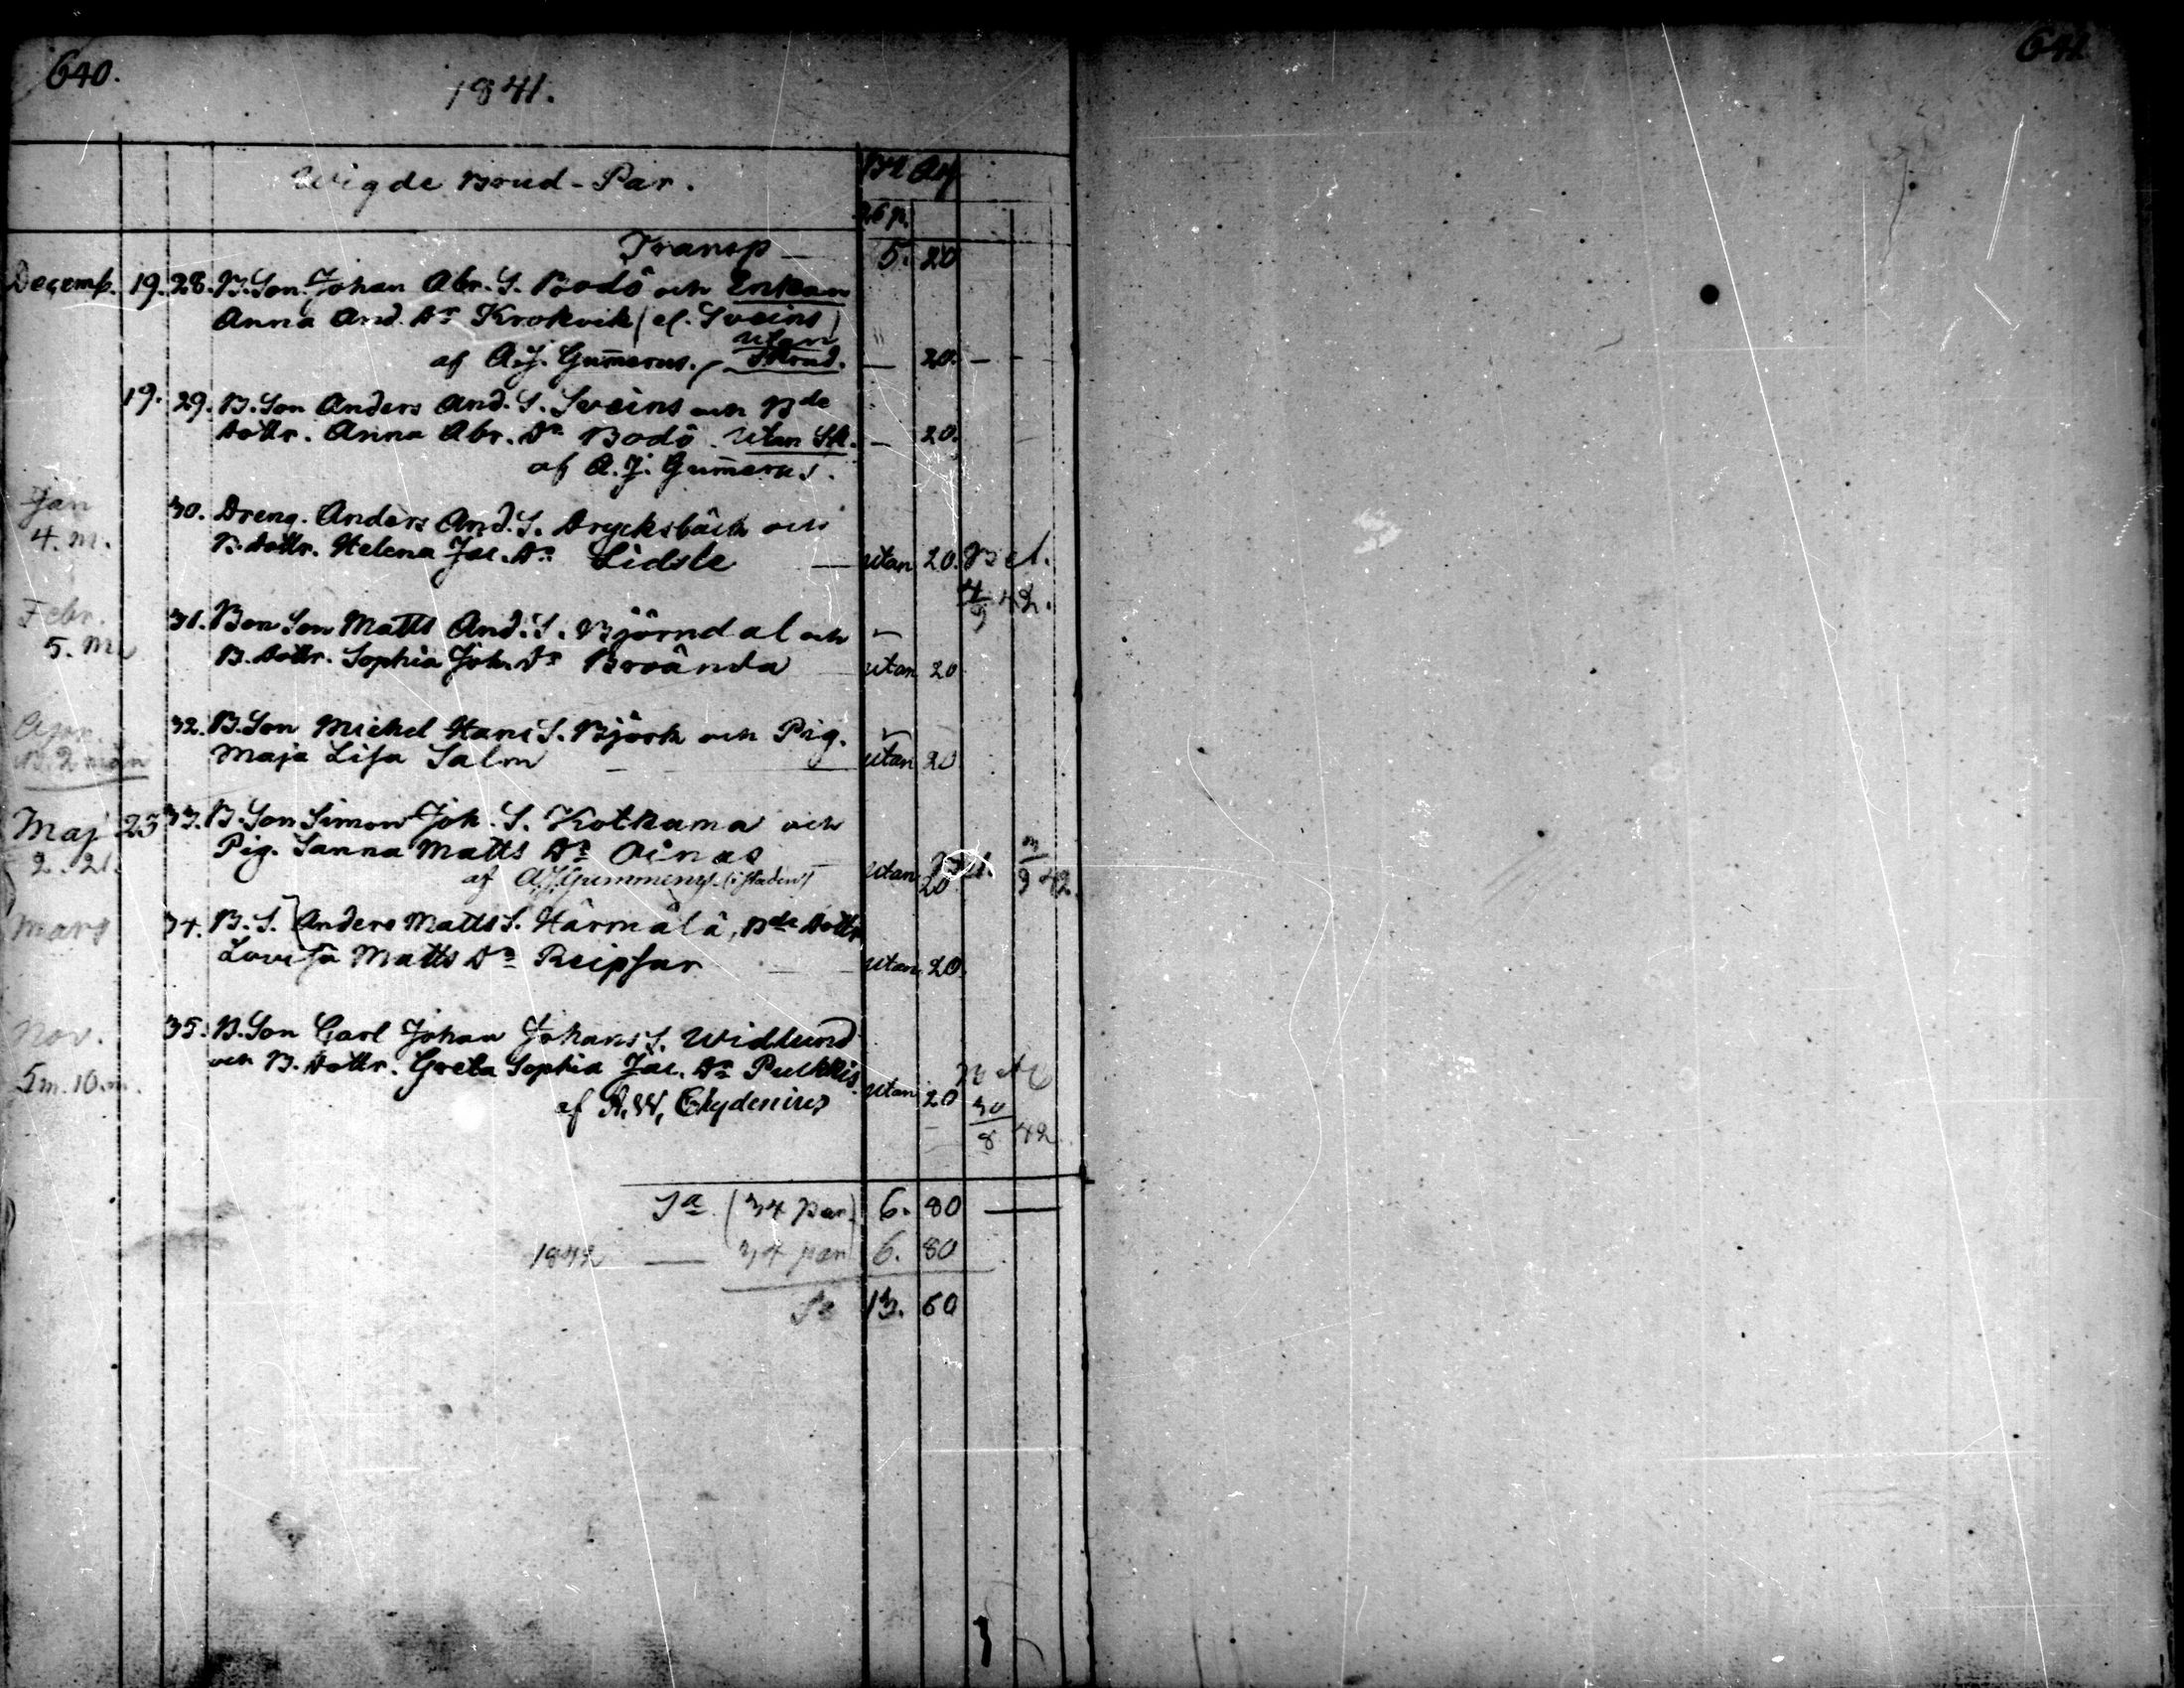 640.
641
1841.
Wigde Brud-Par.
Transp — 5. 20
Decemb. 19. 28. B. Son. Johan Abr. S. Bodö och Enkan
Anna And. Dr Krokvik (el. Sveins)
utan
af A.J. Gum̄erus. Skrud. — 20. —
19. 29. B. Son Anders And. S. Sveins och Bde
dottr. Anna Abr. Dr Bodö. utan Sk. — 20.
af A. J. Gum̄erus.
Jan 30. Dreng. Anders And. S. Drycksbäck och
4. m. B. dottr. Helena Jac. Dr Lidsle — utan 20. Bet.
4/9 42.
Febr. 31. Bon Son Matts And. S. Björndal och
5. m B. dottr. Sophia Joh. Dr Broända utan 20
Apr. 32. B. Son Michel Hans S. Björk och Pig.
2 mån Maja Lisa Salm — utan 20
Maj 23 33. B. Son Simon Joh. S. Kotkama och
2. 21. Pig. Sanna Matts Dr Oinas
af A.J. Gummerus. (i staden) utan 20 9 42.
Mars 34. B. S. Anders Matts S. Härmälä, Bde Dottr
Lovisa Matts Dr Reipsar — utan 20.
Nov. 35. B. Son Carl Johan Johans S. Widlund
5 m. 10 m. och B. dottr. Greta Sophia Jac. Dr Pulkkis. utan 20
af A. W. Chydenius 30/8 42
Sa (34 par) 6. 80 —
1842 — 34 par 6. 80
Sa 13. 60